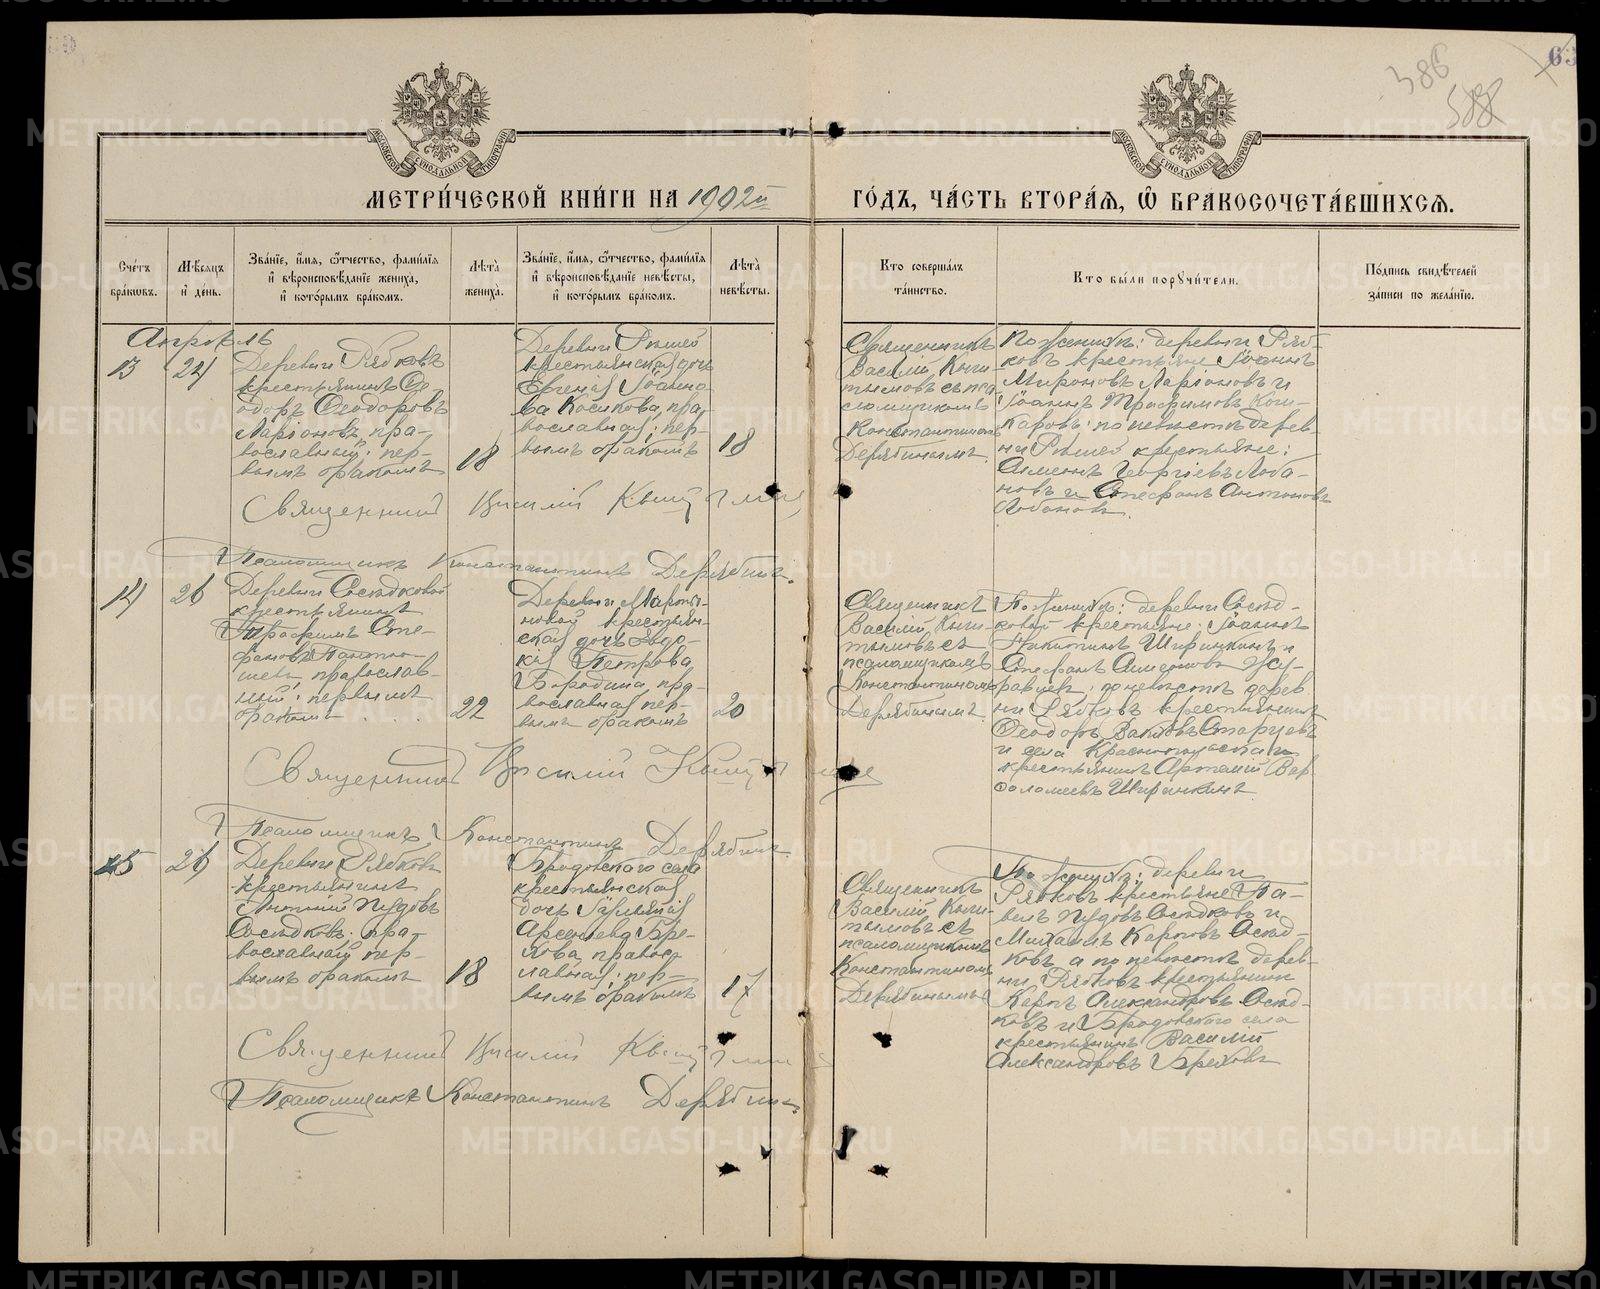 386
388
63
МЕТРИ́ЧЕСКОЙ КНИ́ГИ НА 1902й
ГО́ДЪ, ЧА́СТЬ ВТОРА́Я, Ѿ БРАКОСОЧЕТА́ВШИХСЯ.
Сче́тъ бра́кѡвъ.
Мѣ́сяцъ и҆ де́нь.
Зва́нїе, и҆́мя, ѻ҆́тчество, фами́лїя
и҆ вѣроисповѣ́данїе жениха̀,
и҆ кото́рымъ бра́комъ.
Лѣта̀ жениха̀.
Зва́нїе, и҆́мя, ѻ҆́тчество, фами́лїя
и҆ вѣроисповѣ́данїе невѣ́сты,
и҆ кото́рымъ бра́комъ.
Лѣта̀ невѣ́сты.
Кто соверша́лъ та́инство.
Кто бы́ли порꙋчи́тели.
По́дпись свидѣ́телей за́писи по жела́нїю.
Апрѣль
13
24
Деревни Рябковъ
крестьянинъ Ѳе-
одоръ Ѳеодоровъ
Ларіоновъ, пра-
вославный; пер-
вымъ бракомъ
18
Деревни
крестьянская дочь
Евгенія Іоанно
ва Косикова, пра,
вославная; пер-
вымъ бракомъ
18
Священникъ
Василій
съ пса
ломщикомъ
Константиномъ
Дерябинымъ.
По женихѣ: деревни Ряб-
ковъ крестьяне Іоаннъ
Мироновъ Ларіоновъ и
Іоаннъ Трофимовъ
по невѣстѣ дерев
ни крестьяне:
Симеонъ Георгіевъ Лоба-
новъ и Стефанъ Антоновъ
Лобановъ.
Священникъ Василій
Псаломщикъ Константинъ Дерябинъ.
14
26
Деревни Сосѣдковой
крестьянинъ
Трофимъ Сте-
фановъ
православ-
ный; первымъ
бракомъ
22
Деревни Марты-
новой крестьян-
ская дочь Евдо-
кія Петрова
Бородина, пра-
вославная пер-
вымъ бракомъ
20
Священникъ
Василій
съ
псаломщикомъ
Константиномъ
Дерябинымъ.
По женихѣ: деревни Сосѣд-
ковой крестьяне: Іоаннъ
Никитинъ Ширинкинъ и
Стефанъ Симеоновъ Жу-
равлевъ; по невѣстѣ дерев
ни Рябковъ крестьянинъ
Ѳеодоръ Старцевъ
и села Красногорскаго
крестьянинъ Артемій Вар
ѳоломеевъ Ширинкинъ
Священникъ Василій
Псаломщикъ Константинъ Дерябинъ.
15
26
Деревни Рябковъ
крестьянинъ
Антоній Пудовъ
Сосѣдковъ. пра-
вославный пер-
вымъ бракомъ
18
Бродовскаго села
крестьянская
дочь Іуліанія
Арсеніева Бре-
хова, правос
лавная; пер-
вымъ бракомъ
17
Священникъ
Василій
съ
псаломщикомъ
Константиномъ
Дерябинымъ
По женихѣ: деревни
Рябковъ крестьяне Па-
велъ Пудовъ Сосѣдковъ и
Михаилъ Карповъ Сосѣд-
ковъ, а по невѣстѣ дерев-
ни Рябковъ крестьянин
Карпъ Александровъ Сосѣд-
ковъ и Бродовскаго села
крестьянинъ Василій
Александровъ Бреховъ
Священникъ Василій
Псаломщикъ Константинъ Дерябинъ
METRIKI.GASO-URAL.RU